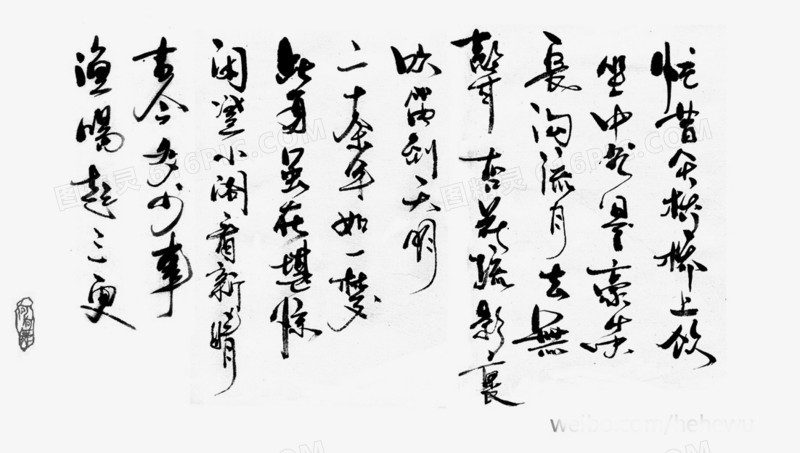 忆昔午桥桥上饮
坐中多是豪英
长沟流月去無
聲杏花疏影裏
吹笛到天明
二十余年如一梦
此身虽在堪惊
闲登小阁看新晴
古今多少事
渔唱起三更
weibo.com/hehewu